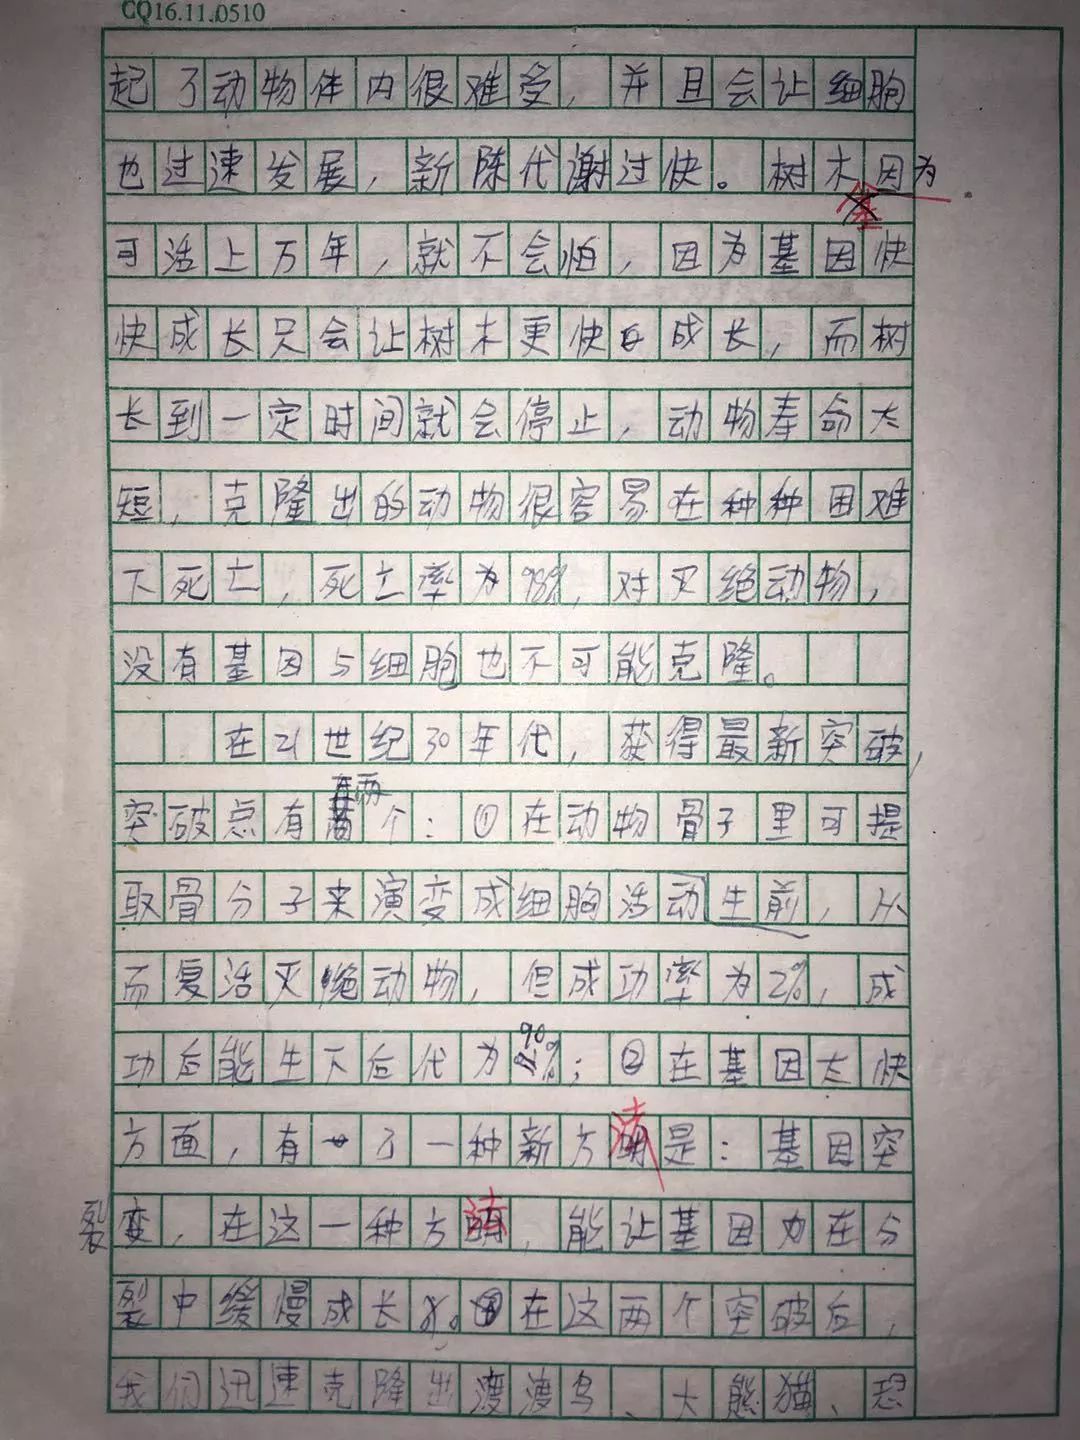 CQ16.11.0510
起了动物体内很难受，并且会让细胞
也过速发展，新陈代谢过快。树木因为
可活上万年，就不会怕，因为基因快
快成长只会让树木更快成长，而树
长到一定时间就会停止，动物寿命太
短，克隆出的动物很容易在种种困难
下死亡，死亡率为98%，对灭绝动物，
没有基因与细胞也不可能克隆。
在21世纪30年代，获得最新突破，
突破总有两个：①在动物骨子里可提
取骨分子来演变成细胞活动生前，从
而复活灭绝动物，但成功率为2%，成
功后能生下后代为90%；②在基因太快
方面，有了一种新方法是：基因突
变，在这一种方法，能让基因力在与
裂中缓慢成长。在这两个突破后，
我们迅速克隆出渡渡鸟、大熊猫、恐
裂